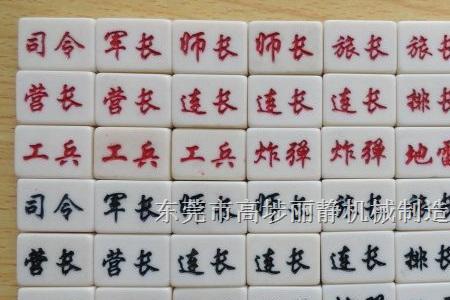 司令 军长 师长 师长 旅长 旅长
营长 营长 连长 连长 连长 排长
工兵 工兵 工兵 炸弹 炸弹 地雷
司令 军长 师长 师长 旅长 旅长
东莞市高埗丽静机械制造
营长 营长 连长 连长 连长 排长